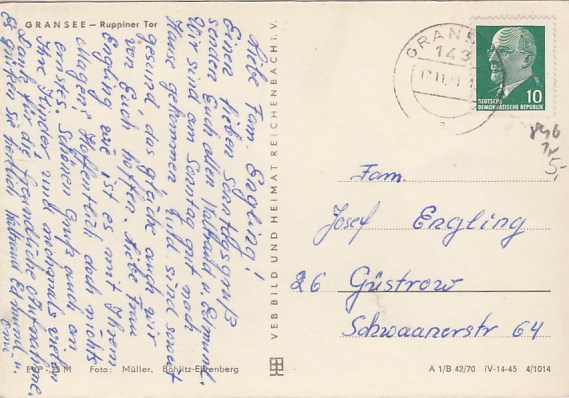 GRANSEE — Ruppiner Tor
Liebe Fam. Engling!
Einen lieben Sonntagsgruß
senden Euch allen Waltraud u. Edmund.
Wir sind am Sonntag gut nach
Haus gekommen und sind soweit
gesund das gleiche auch wir
von Euch hoffen. Liebe Frau
Engling wie ist es mit Ihrem
Magen, Hoffentlich doch nichts
ernstes. Schönen Gruß auch an
Ihre Kinder und nochmals vielen
Dank für die freundliche Aufnahme.
Es grüßen sie herzlich Edmund u.
Omi
EVP -,25 M Foto: Müller, Böhlitz-Ehrenberg
VEB BILD UND HEIMAT REICHENBACH i. V.
GRANSEE
143
DEUTSCHE
DEMOKRATISCHE REPUBLIK
10
5,-
Fam.
Josef Engling
26 Güstrow
Schwaanerstr 64
A 1/B 42/70 IV-14-45 4/1014